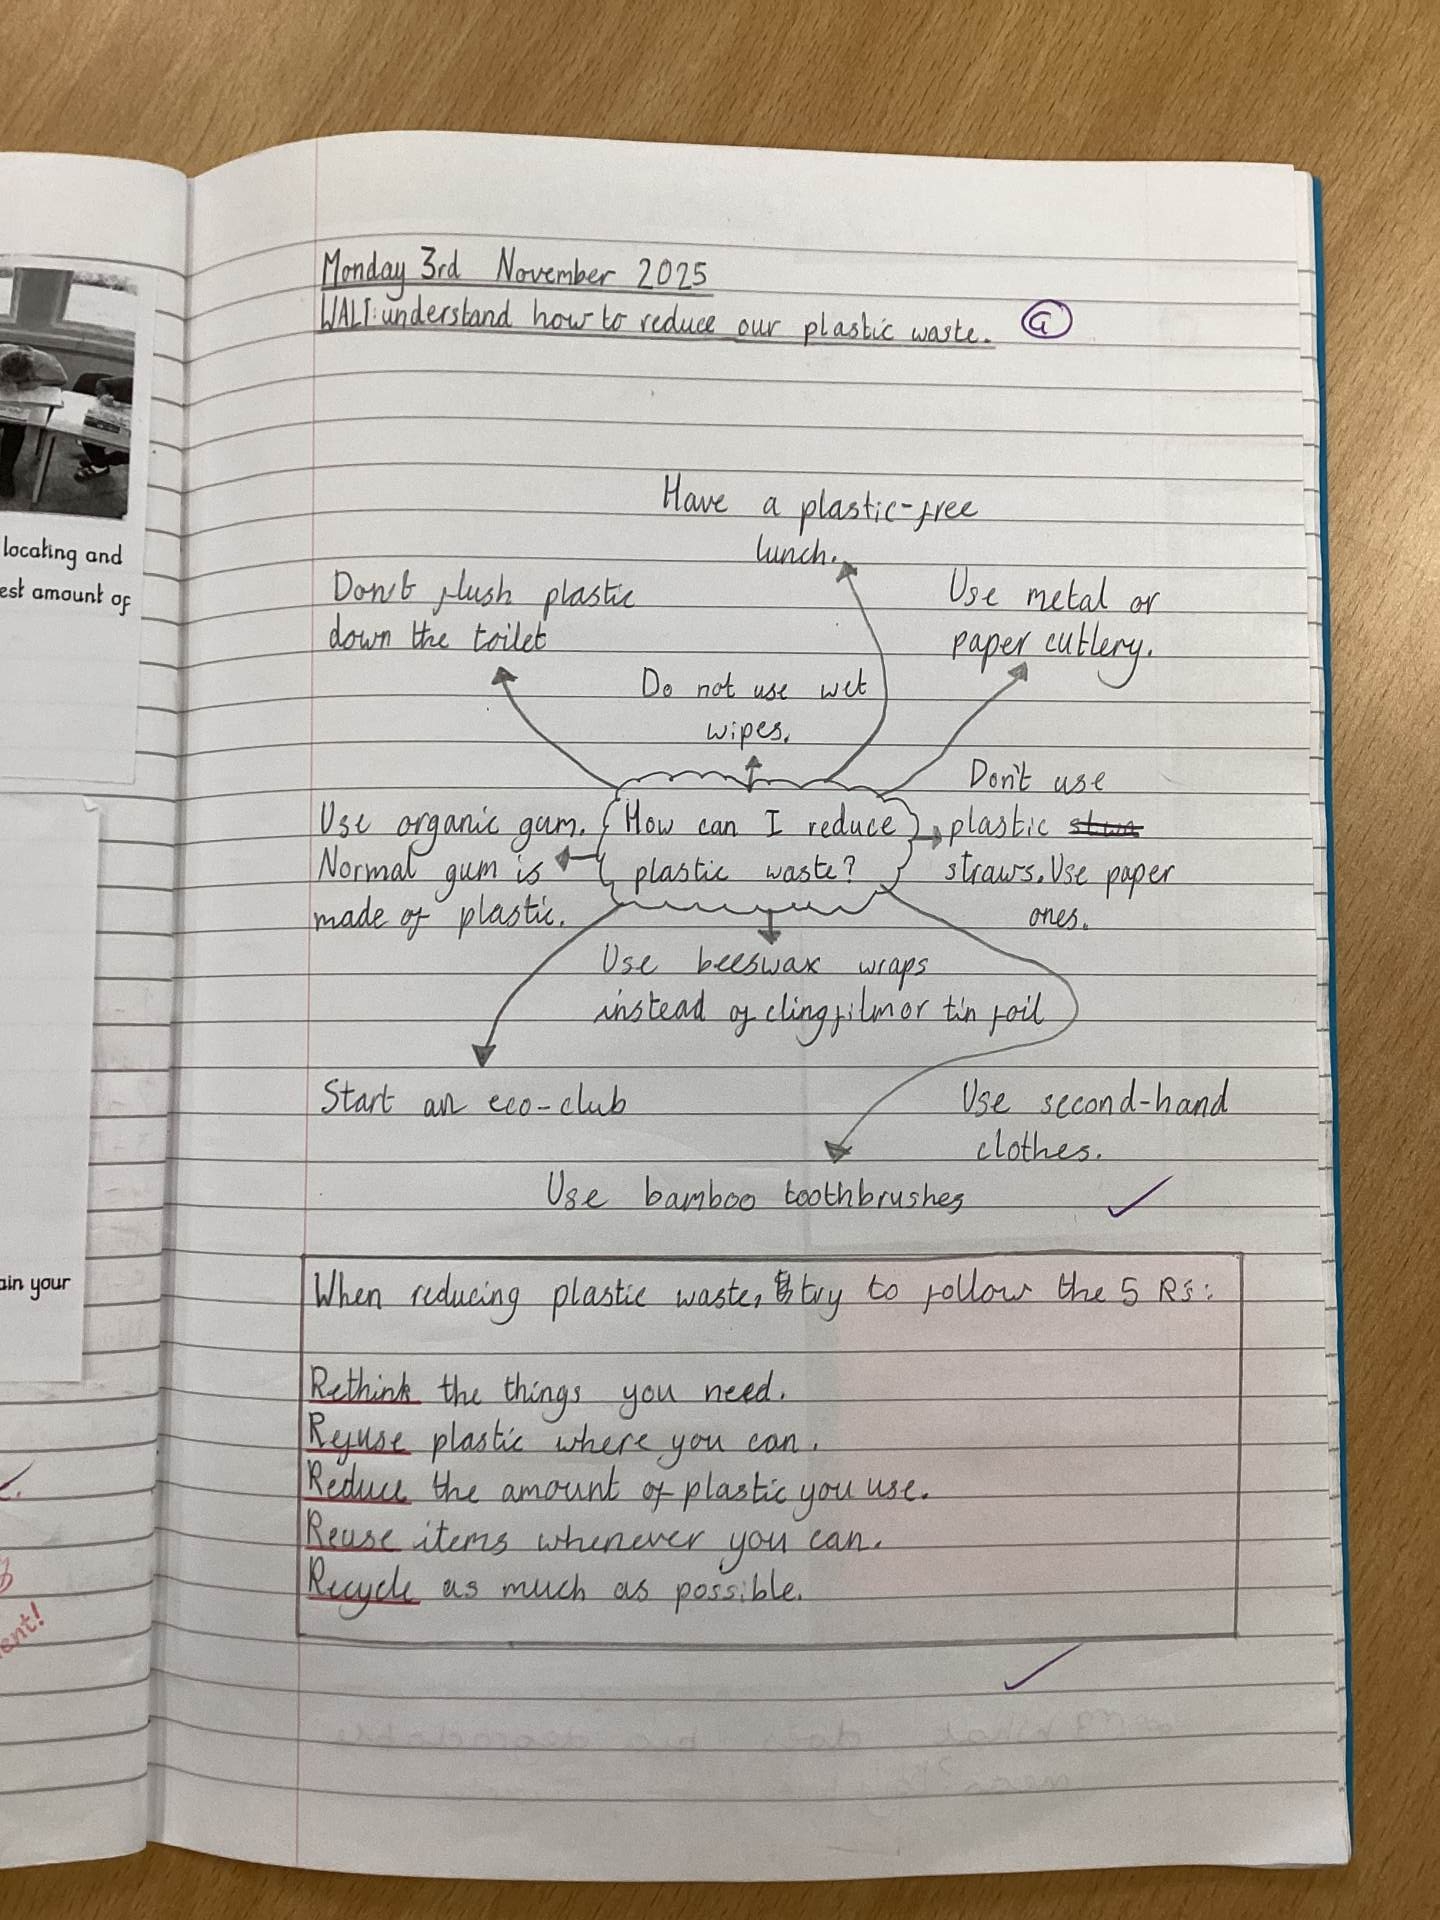 locating and
est amount of
ain your
ent!
Monday 3rd November 2025
WALT: understand how to reduce our plastic waste. G
Have a plastic-free
lunch.
Don't flush plastic
down the toilet
Use metal or
paper cutlery.
Do not use wet
wipes.
Don't use
plastic
straws. Use paper
ones.
Use organic gum.
Normal gum is
made of plastic.
How can I reduce
plastic waste?
Use beeswax wraps
instead of clingfilm or tin foil
Start an eco-club
Use second-hand
clothes.
Use bamboo toothbrushes
When reducing plastic waste, try to follow the 5 Rs:
Rethink the things you need.
Refuse plastic where you can.
Reduce the amount of plastic you use.
Reuse items whenever you can.
Recycle as much as possible.